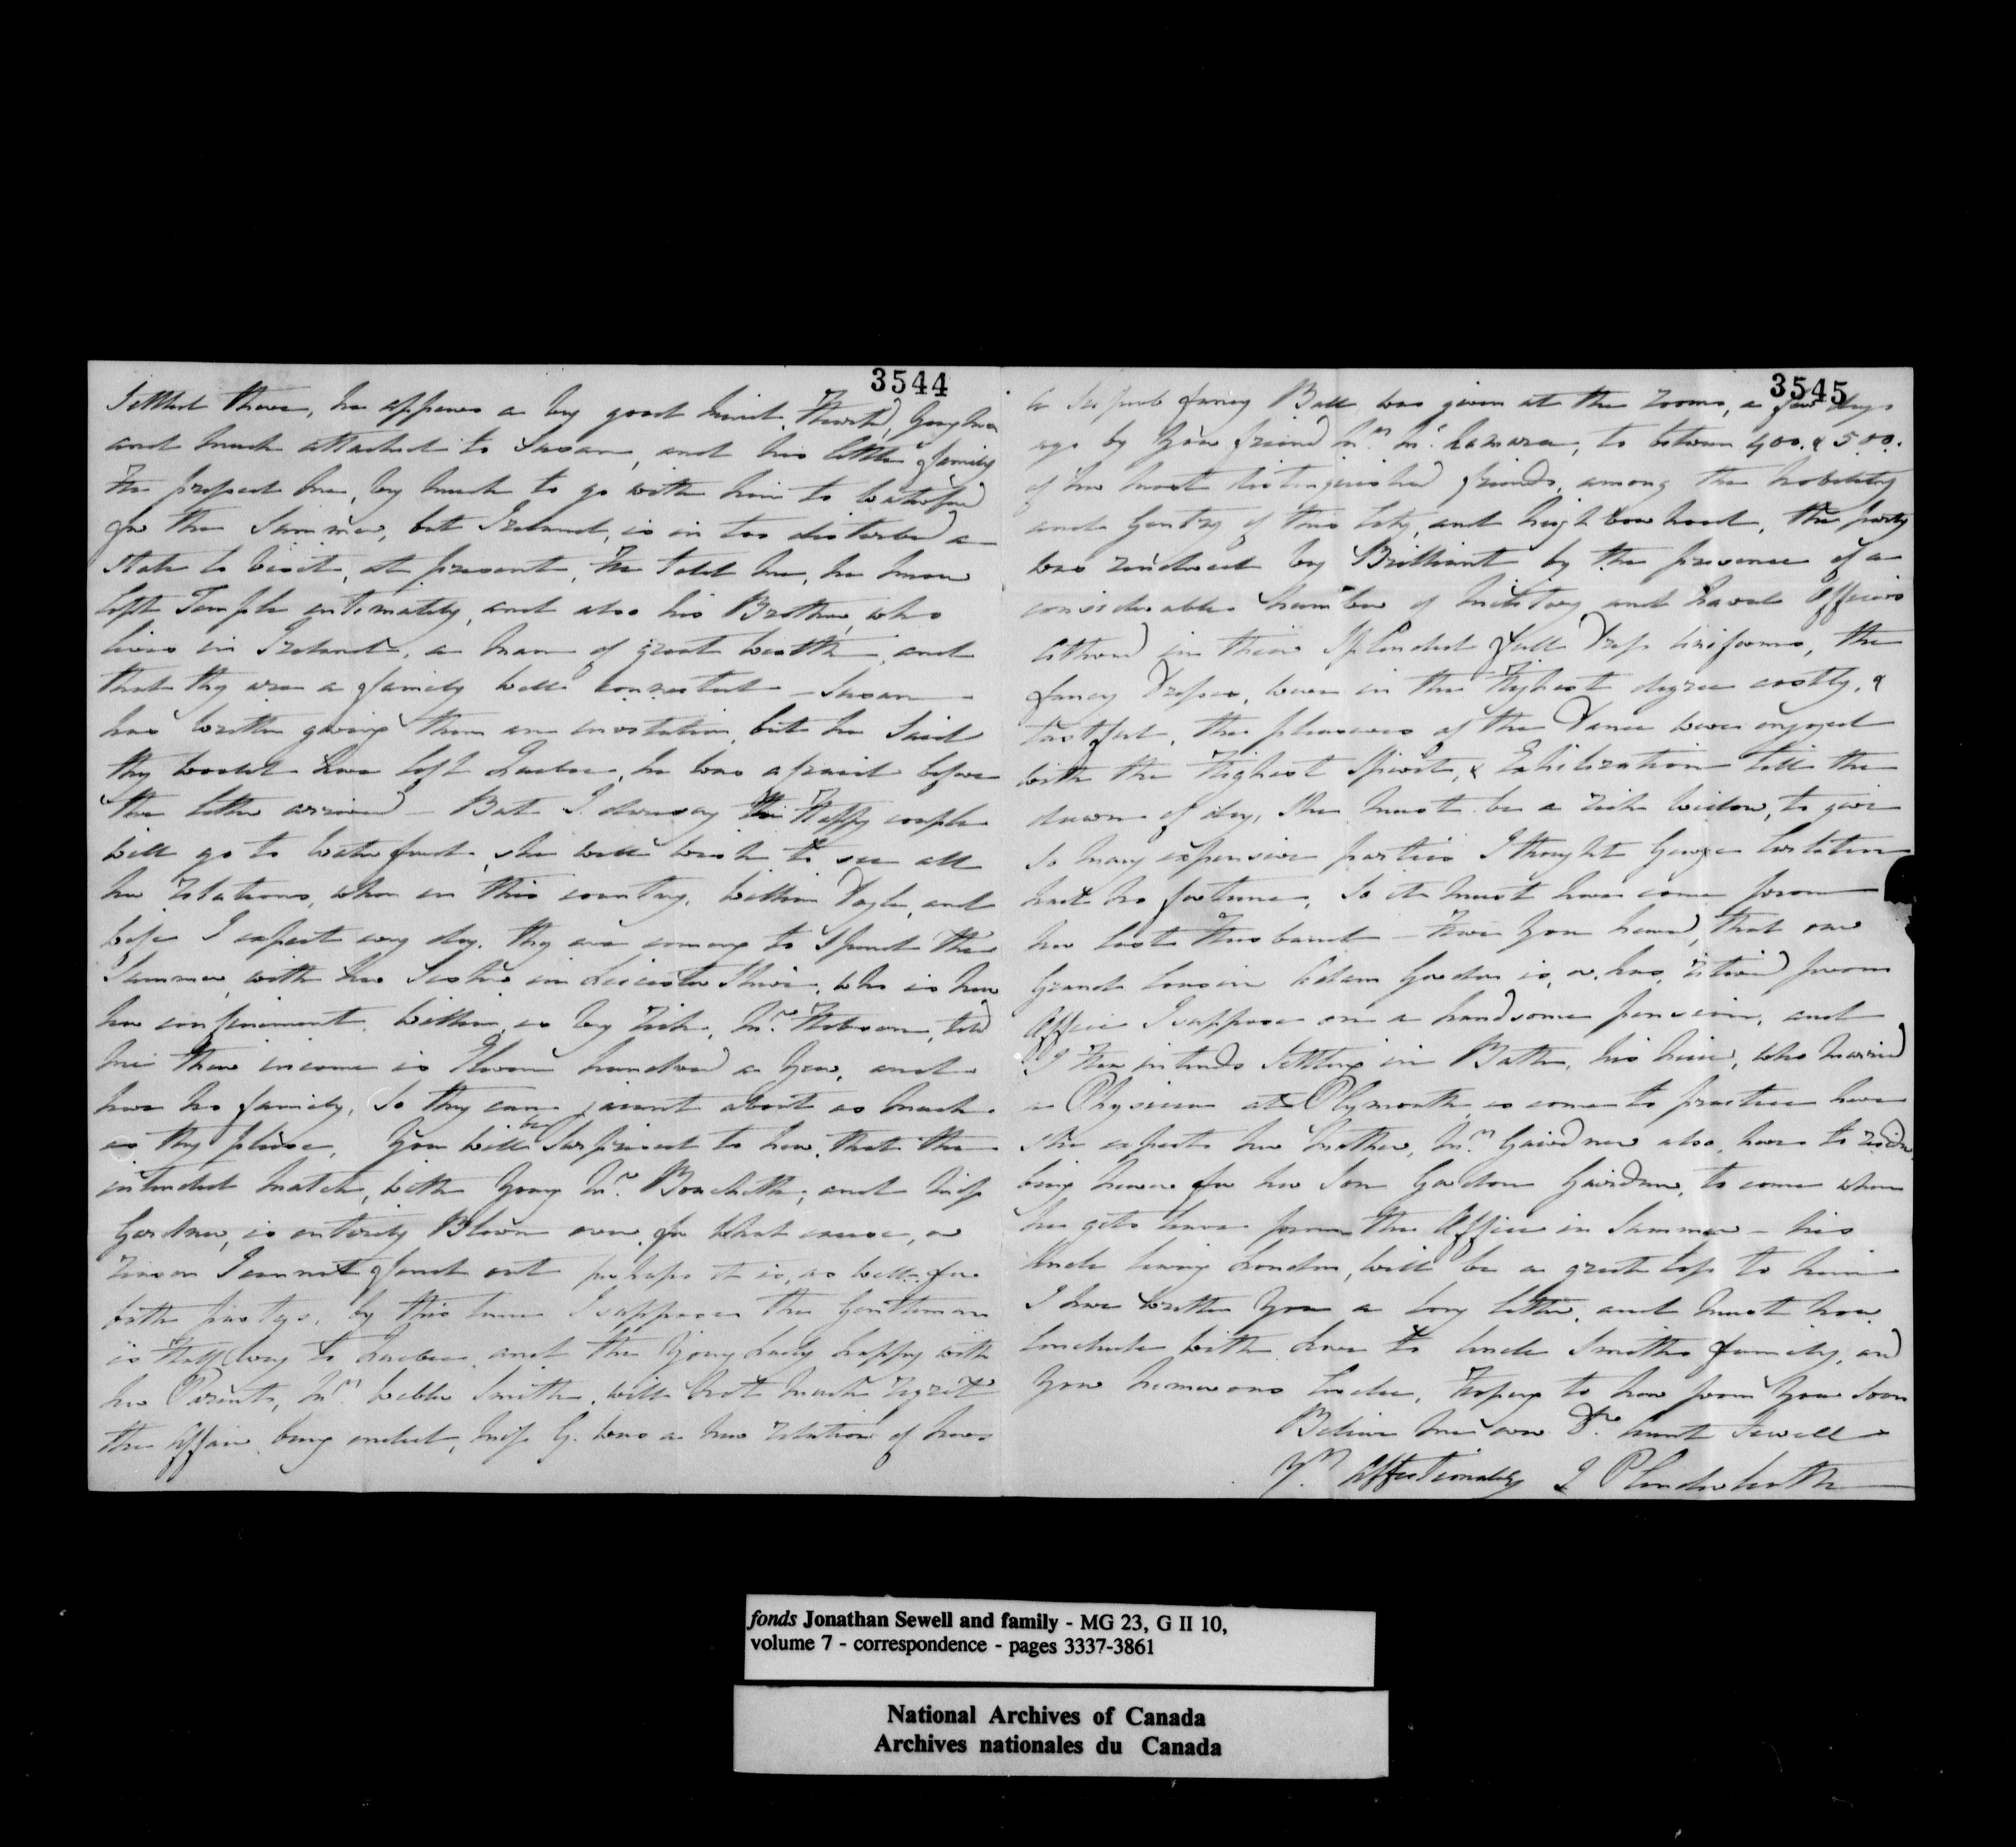 3544
Settled there, he appears a very good kind, Hearted, Young Man
and much attached to Susan, and his little family
He pressed me, very much to go with him to Waterford
for the Summer, but Ireland, is in too disturbed a
State to visit, at present, He told me, he knew
Capt Temple intimately, and also his Brother, who
lives in Ireland, a man of great wealth, and
that they are a family well connected - Susan
has written giving them an invitation, but he Said
they would have left Quebec, he was afraid before
the letter arrived - But I daresay the Happy couple
will go to Waterford, she will wish to see all
her relations, when in this country, William Doyle, and
Wife I expect every day, they are coming to Spend the
Summer, with her Sister in Leicester Shire, who is near
her confinement, William, is very rich, Mr. Hobson, told
me their income is Eleven hundred a Year, and
have no family, So they can jaunt about as much
as they please, You will be Surprised to hear, that the
intended match, with Young Mr. Bouchette, and Miss
Gardner, is entirely Blown over, for what cause, or
reason I cannot find out perhaps it is, as well for
both partys, by this time I suppose the Gentleman
is Half way to Quebec, and the Young Lady happy with
her Parents, Mrs. Webber Smith, will not much regret
the affair being ended, Miss G. was a near relation of hers
3545
A Superb fancy Ball was given at the rooms, a few days
ago by Your friend Mrs. Mc.Namara, to between 400. & 500.
of her most distinguished friends, among the nobility
and Gentry of this City, and neighbourhood, the party
was rendered very Brilliant by the presence of a
considerable number of Military and Naval Officers
attired in their Splendid full Dress Uniforms, the
fancy Dresses, were in the Highest degree costly, &
tastful, the pleasures of the Dance were enjoyed
with the Highest Spirit, & Exhileration till the
dawn of day, She must be a rich widow, to give
So many expensive parties I thought George
had no fortune, So it must have come from
her last Husband - Have You heard, that our
Grand Cousin Adam Gordon is, or has, retired from
Office I suppose on a handsome pension, and
He intends Settling in Bath, his niece, who married
a Physician at Plymouth is come to practice here
She expects her Mother, Mrs. Gairdner also, here to reside
being nearer for her Son Gordon Gairdner, to come when
he gets leave from the Office in Summer - his
Uncle leaving London, will be a great loss to him
I have written You a long letter, and must now
Conclude with Love to Uncle Smiths family, and
Your numerous Circle, Hoping to hear from You Soon
Believe me ever Dr. Aunt Sewell
Yrs. Affectionately J Plenderleath
fonds Jonathan Sewell and family - MG 23, G II 10,
volume 7 - correspondence - pages 3337-3861
National Archives of Canada
Archives nationales du Canada